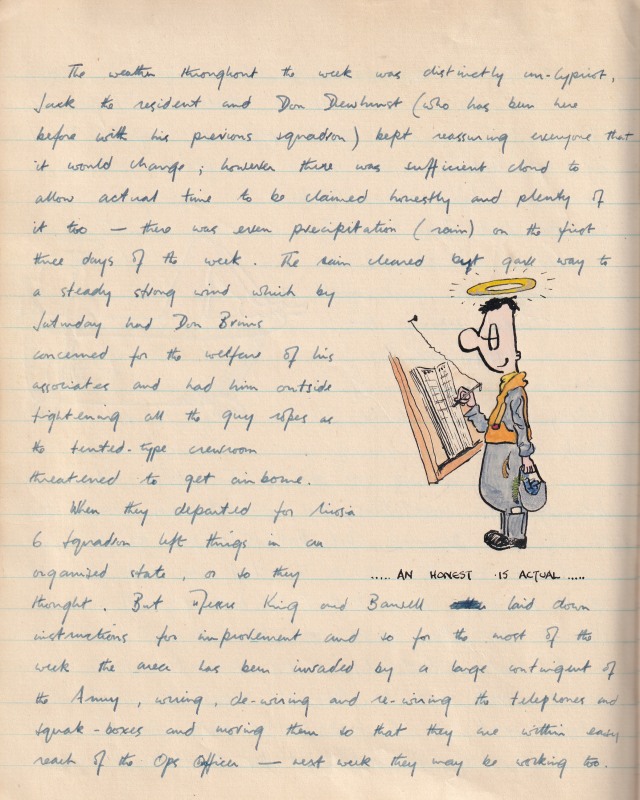 The weather throughout the week was distinctly un-Cypriot,
Jack the resident and Don Dewhurst (who has been here
before with his previous squadron) kept reassuring everyone that
it would change; however there was sufficient cloud to
allow actual time to be claimed honestly and plenty of
it too — there was even precipitation (rain) on the first
three days of the week. The rain cleared but gave way to
a steady strong wind which by
Saturday had Don Brains
concerned for the welfare of his
associates and had him outside
tightening all the guy ropes as
the tented-type crewroom
threatened to get airborne.
When they departed for
6 Squadron left things in an
organised state, or so they
..... AN HONEST ·15 ACTUAL .....
thought. But King and laid down
instructions for improvement and so for the most of the
week the area has been invaded by a large contingent of
the Army, wiring, de-wiring and re-wiring the telephones and
squak-boxes and moving them so that they are within easy
reach of the Ops Officer — next week they may be working too.